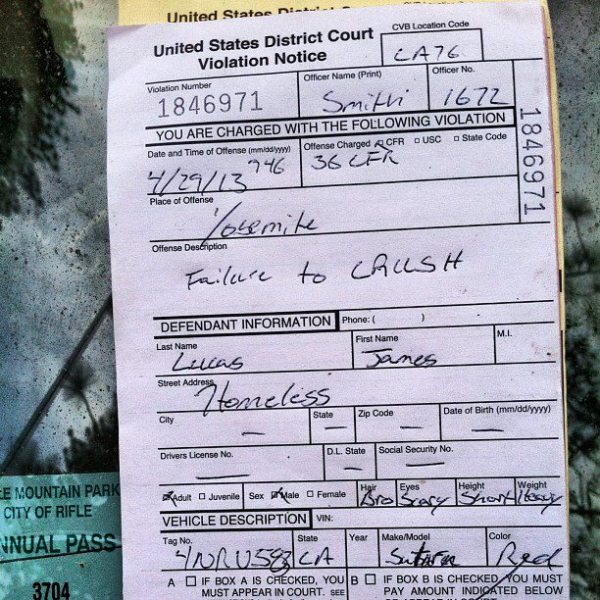 United States District Court
United States District Court
Violation Notice
CVB Location Code
CA76
Violation Number
1846971
Officer Name (Print)
Smith
Officer No.
1672
YOU ARE CHARGED WITH THE FOLLOWING VIOLATION
Date and Time of Offense (mm/dd/yyyy)
4/29/13 946
Offense Charged CFR USC State Code
36 CFR
1846971
Place of Offense
Yosemite
Offense Description
Failure to CRUSH
DEFENDANT INFORMATION Phone: ( )
Last Name
Lucas
First Name
James
M.I.
Street Address
Homeless
City
State
Zip Code
Date of Birth (mm/dd/yyyy)
Drivers License No.
D.L. State
Social Security No.
Adult Juvenile Sex Male Female
Hair
Bro
Eyes
Scary
Height
Short
Weight
Heavy
VEHICLE DESCRIPTION VIN:
Tag No.
State
CA
Year
Make/Model
Color
Red
A IF BOX A IS CHECKED, YOU MUST APPEAR IN COURT. SEE
B IF BOX B IS CHECKED, YOU MUST PAY AMOUNT INDICATED BELOW
LE MOUNTAIN PARK
CITY OF RIFLE
NNUAL PASS
3704